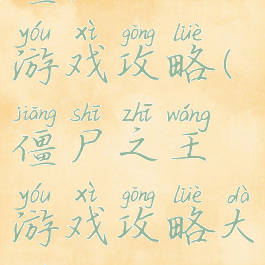 yóu xì gōng lüè
游戏攻略(
jiāng shī zhī wáng
僵尸之王
yóu xì gōng lüè dà
游戏攻略大